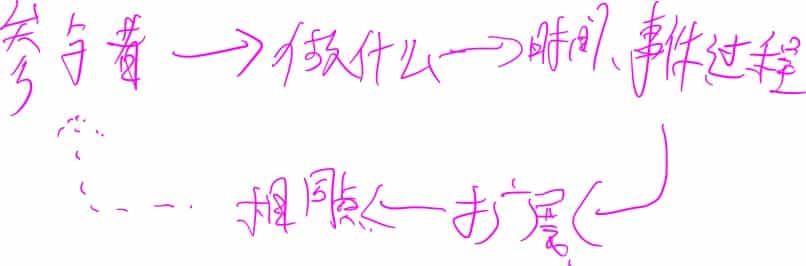 参与者 → 做什么 → 时间、事件过程
相同点 ← 扩展 ←